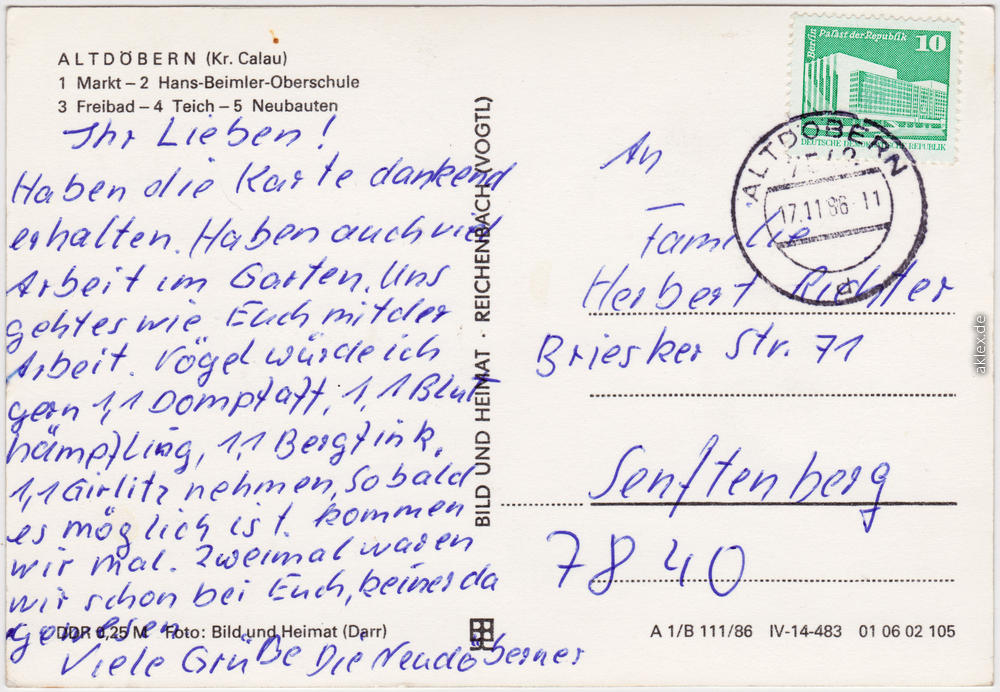 ALTDÖBERN (Kr. Calau)
1 Markt – 2 Hans-Beimler-Oberschule
3 Freibad – 4 Teich – 5 Neubauten
Ihr Lieben!
Haben die Karte dankend
erhalten. Haben auch viel
Arbeit im Garten. Uns
geht es wie Euch mit der
Arbeit. Vögel würde ich
gern 1,1 Dompfaff, 1,1 Blut
hämpfling, 1,1 Bergfink,
1,1 Girlitz nehmen, Sobald
es möglich ist. kommen
wir mal. Zweimal waren
wir schon bei Euch, keiner da
gewesen.
Viele Grüße Die Neudöberner
DDR 0,25 M Foto: Bild und Heimat (Darr)
BILD UND HEIMAT · REICHENBACH (VOGTL)
Berlin Palast der Republik 10
DEUTSCHE DEMOKRATISCHE REPUBLIK
ALTDÖBERN
17.11.86-11
d
An
Familie
Herbert Richter
Briesker Str. 71
Senftenberg
7840
A 1/B 111/86 IV-14-483 01 06 02 105
aklex.de